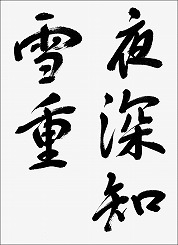 夜深知
雪重